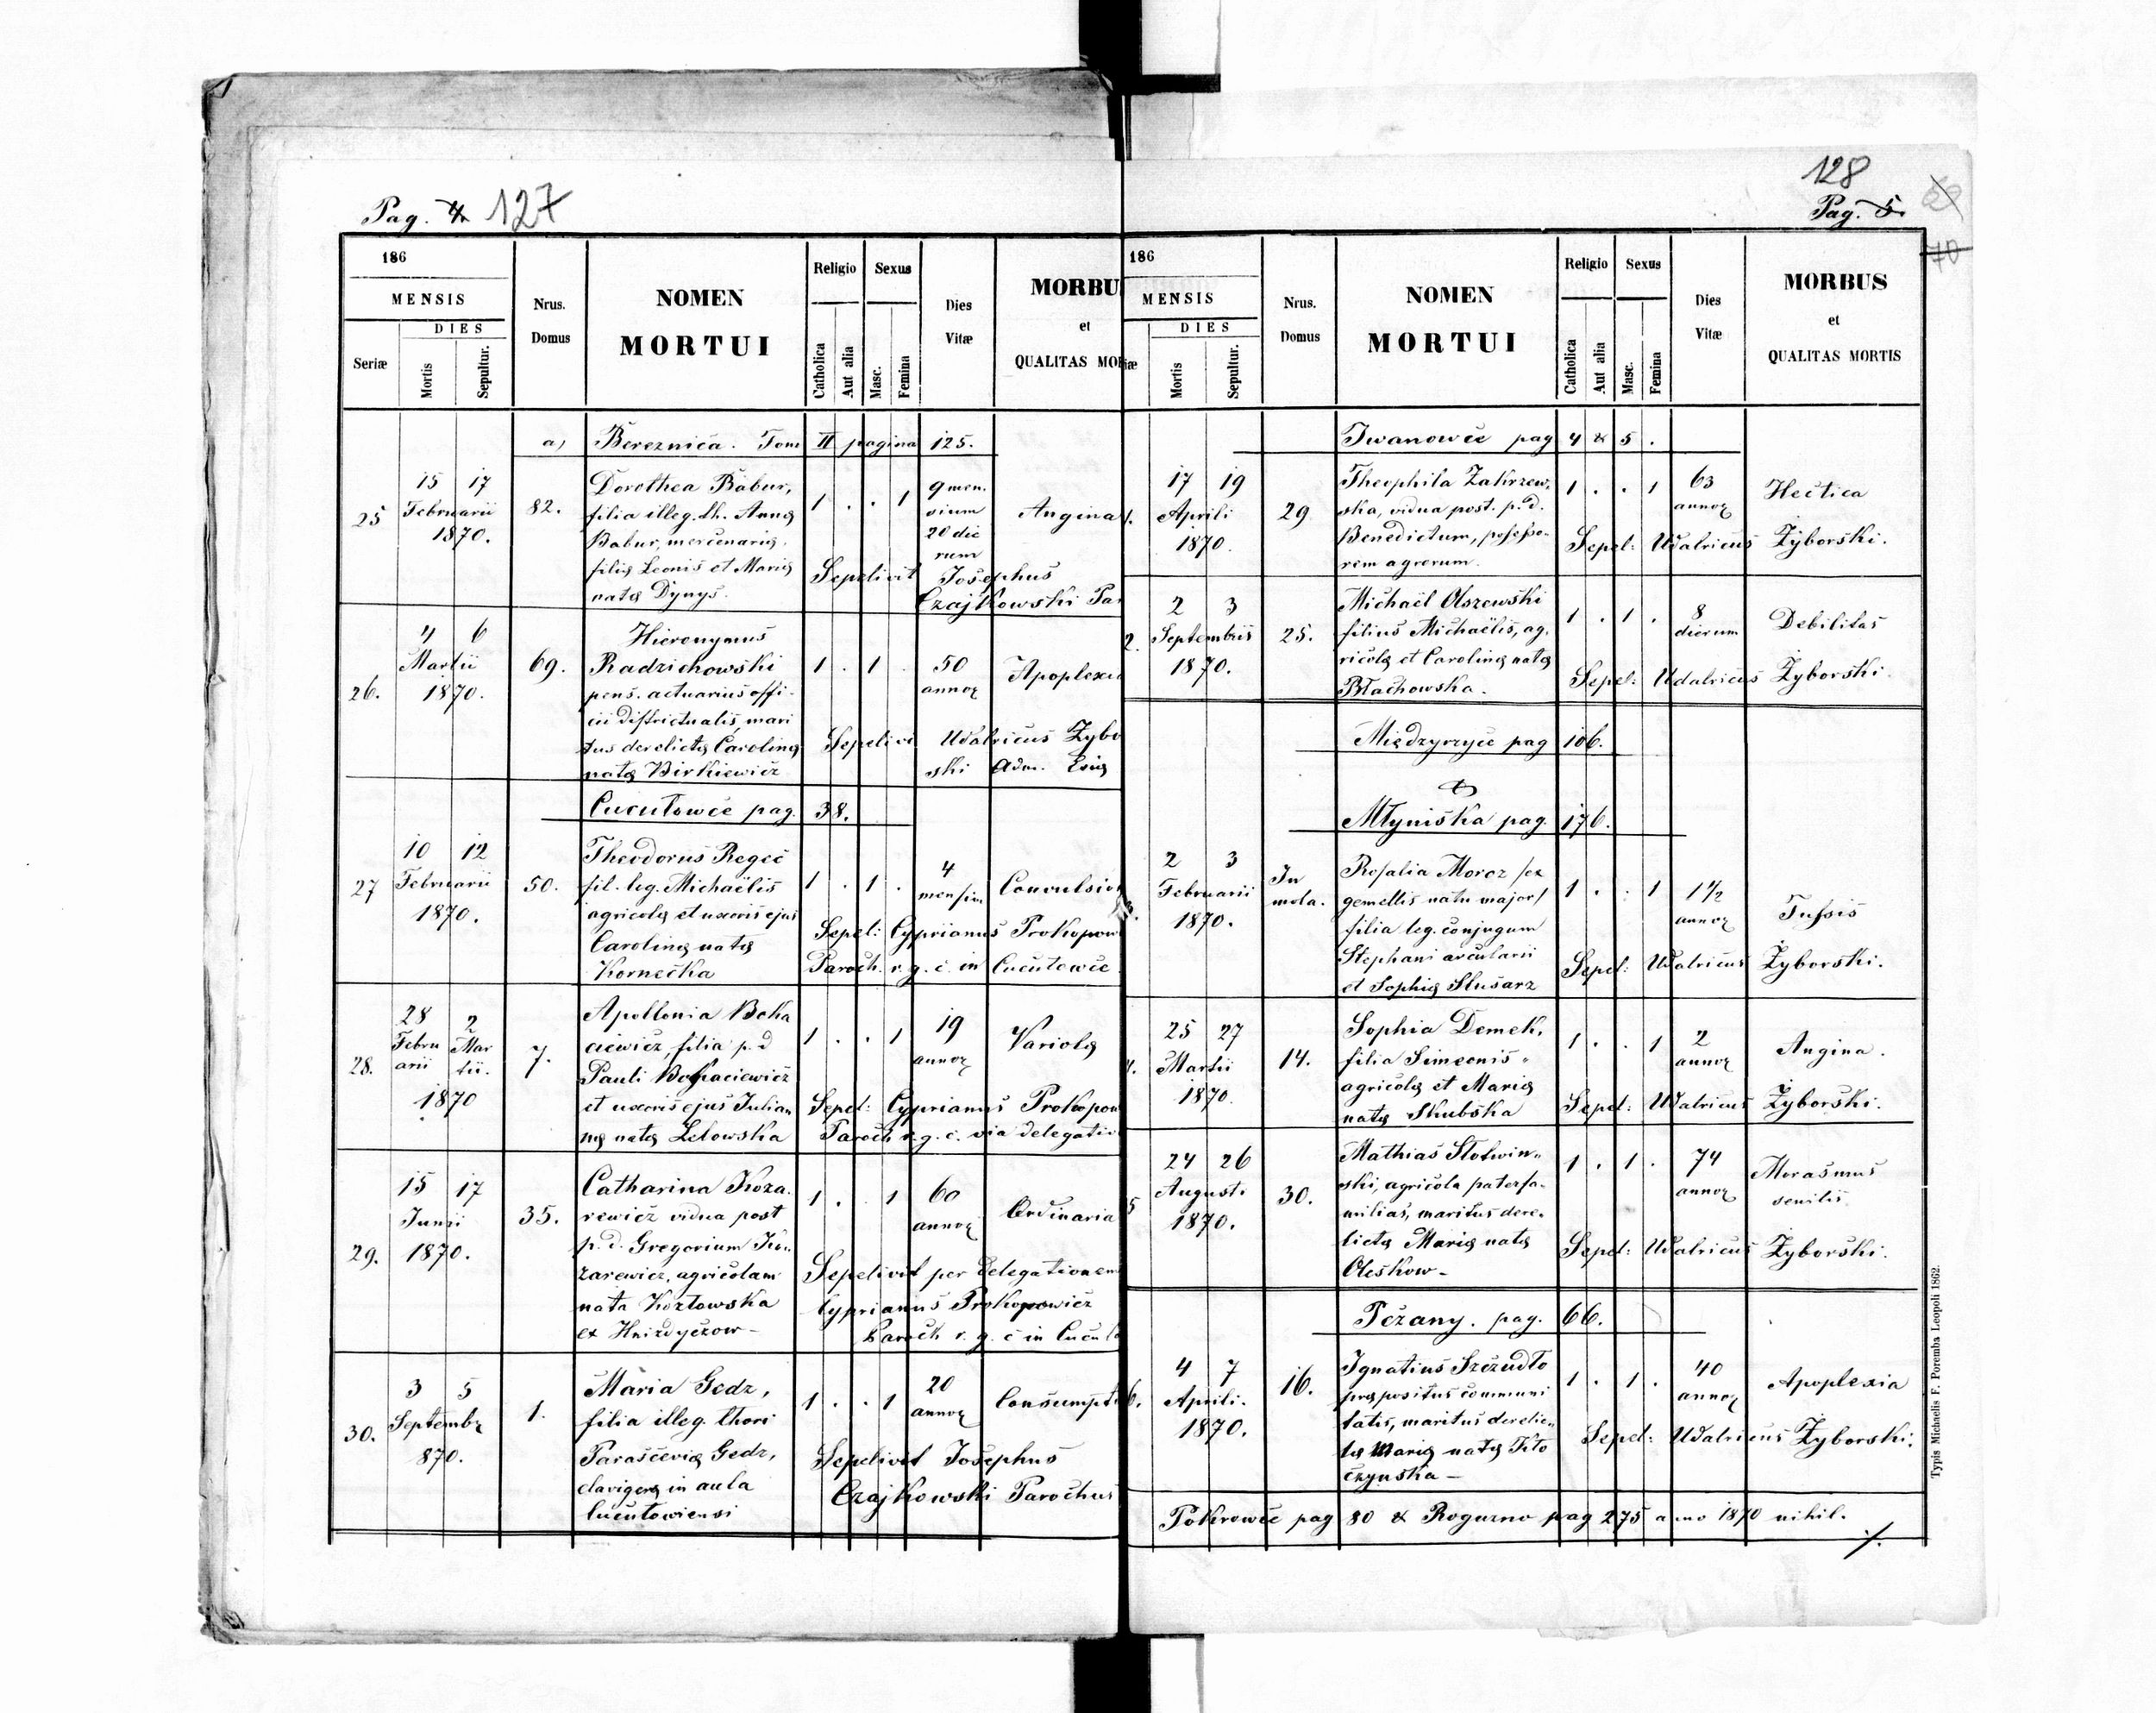 Pag. 4 127
186
MENSIS
Seriæ
DIES
Mortis
Sepultur.
Nrus.
Domus
NOMEN
MORTUI
Religio
Catholica
Aut alia
Sexus
Masc.
Femina
Dies
Vitæ
MORBU
et
QUALITAS MO
a) Bereznica. Tom II pagina 125.
25
15 17
Februarii
1870.
82.
Dorothea Babur,
filia illeg. th. Annę
Babur, mercenarię,
filię Leonis et Marię
natę Dynyś.
1 . . 1
9 men.
sium
20 die
rum
Angina
Sepelivit Josephus
Czajkowski Par
26.
4 6
Martii
1870.
69.
Hieronymus
Radzichowski
pens. actuarius offi-
cii districtualis, mari
tus derelictę Carolinę
natę Birkiewicz
1 . 1 .
50
annor
Apoplexia
Sepelivi Udalricus Żybo
ski Adm. Ecię
Cucułowce pag. 38.
27
10 12
Februarii
1870.
50.
Theodorus Regeć
fil. leg. Michaëlis
agricolę et uxoris ejus
Carolinę natę
Kornecka
1 . 1 .
4
mensiu
Convulsion
Sepel: Cyprianus Prokopow
Paroch. r. g. c. in Cucułowce
28.
28 2
Febru Mar
arii tii.
1870
7.
Apollonia Boka
ciewicz, filia p. d
Pauli Bokaciewicz
et uxoris ejus Julian
nę natę Lelowska
1 . . 1
19
annor
Variolę
Sepel: Cyprianus Prokopow
Paroch r. g. c. via delegatio
29.
15 17
Junii
1870.
35.
Catharina Koza.
rewicz vidua post
p. d. Gregorium Ko„
zarewicz, agricolam
nata Kozłowska
ex Hnizdyczow –
1 . . 1
60
annor
Ordinaria
Sepelivit per delegationem
Cyprianus Prokopowicz
Paroch r. g. c in Cucuło
30.
3 5
Septembr
870.
1.
Maria Gedz,
filia illeg. thori
Parascevię Gedz,
clavigerę in aula
Cucułowiensi
1 . . 1
20
annor
Consumpti
Sepelivit Josephus
Czajkowski Parochus
128
Pag. 5.
70
186
MENSIS
iæ
DIES
Mortis
Sepultur.
Nrus.
Domus
NOMEN
MORTUI
Religio
Catholica
Aut alia
Sexus
Masc.
Femina
Dies
Vitæ
MORBUS
et
QUALITAS MORTIS
Iwanowce pag 4 & 5.
1.
17 19
Aprili
1870.
29
Theophila Zakrzew.
ska, vidua post. p. d.
Benedictum, posseso-
rem agrorum.
1 . . 1
63
annor
Hectica
Sepel: Udalricus Żyborski.
2.
2 3
Septembris
1870.
25.
Michaël Olszewski
filius Michaëlis, ag.
ricolę et Carolinę natę
Błachowska.
1 . 1 .
8
dierum
Debilitas
Sepel: Udalricus Żyborski.
Międzyrzyce pag 106.
&
Młyniska pag. 176.
3.
2 3
Februarii
1870.
In
mola.
Rosalia Moroz /ex
gemellis natu major/
filia leg. conjugum
Stephani arcularii
et Sophię Slusarz
1 . . 1
1½
annor
Tussis
Sepel: Udalricus Żyborski.
4.
25 27
Martii
1870.
14.
Sophia Demek,
filia Simeonis
agricolę et Marię
natę Skubska
1 . . 1
2
annor
Angina.
Sepel: Udalricus Żyborski.
5
24 26
Augusti
1870.
30.
Mathias Słotwin„
ski, agricola paterfa.
milias, maritus dere.
lictę Marię natę
Oleskow –
1 . 1 .
74
annor
Morasmus
senilis.
Sepel: Udalricus Żyborski.
Pczany. pag. 66.
6.
4 7
Aprili.
1870.
16.
Ignatius Szczudło
prępositus communi
tatis, maritus derelic„
tę Marię natę Kło
czynska –
1 . 1 .
40
annor
Apoplexia
Sepel: Udalricus Żyborski.
Pokrowce pag 80 & Roguzno pag 275 anno 1870 nihil.
Typis Michaelis F. Poremba Leopoli 1862.